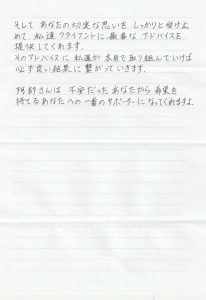 そして あなたの切実な思いを しっかりと受け止
めて、私達 クライアントに 最善な アドバイスを
提供してくれます。
そのアドバイスに 私達が 本気で取り組んでいけば
必ず良い結果に 繋がっていきます。
阿部さんは 不安だった あなたから 希望を
持てる あなたへの 一番のサポーターに なってくれますよ。